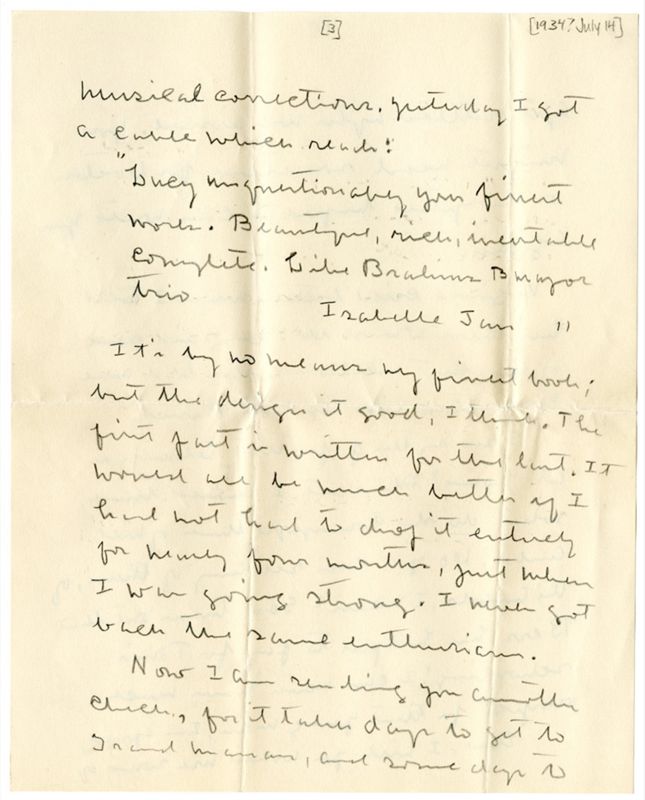 [3]
[1934? July 14]
musical corrections. Yesterday I got
a cable which reads:
"Lucy unquestionably your finest
work. Beautiful, rich, inevitable
complete. Like Brahms B major
trio
Isabelle Jan "
It's by no means my finest book;
but the design it good, I think. The
first part is written for the last. It
would all be much better if I
had not had to drop it entirely
for nearly four months, just when
I was going strong. I never got
back the same enthusiasm.
Now I am sending you another
check, for it takes days to get to
Grand Manan, and some days to